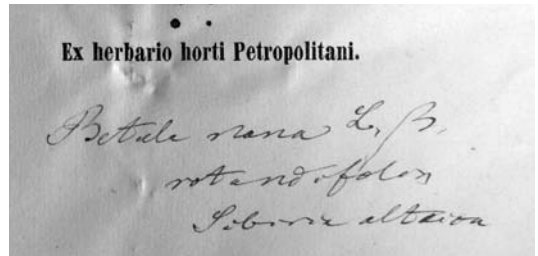 Ex herbario horti Petropolitani.
Betula nana L. β.
rotundifolia
Sibiria altaica